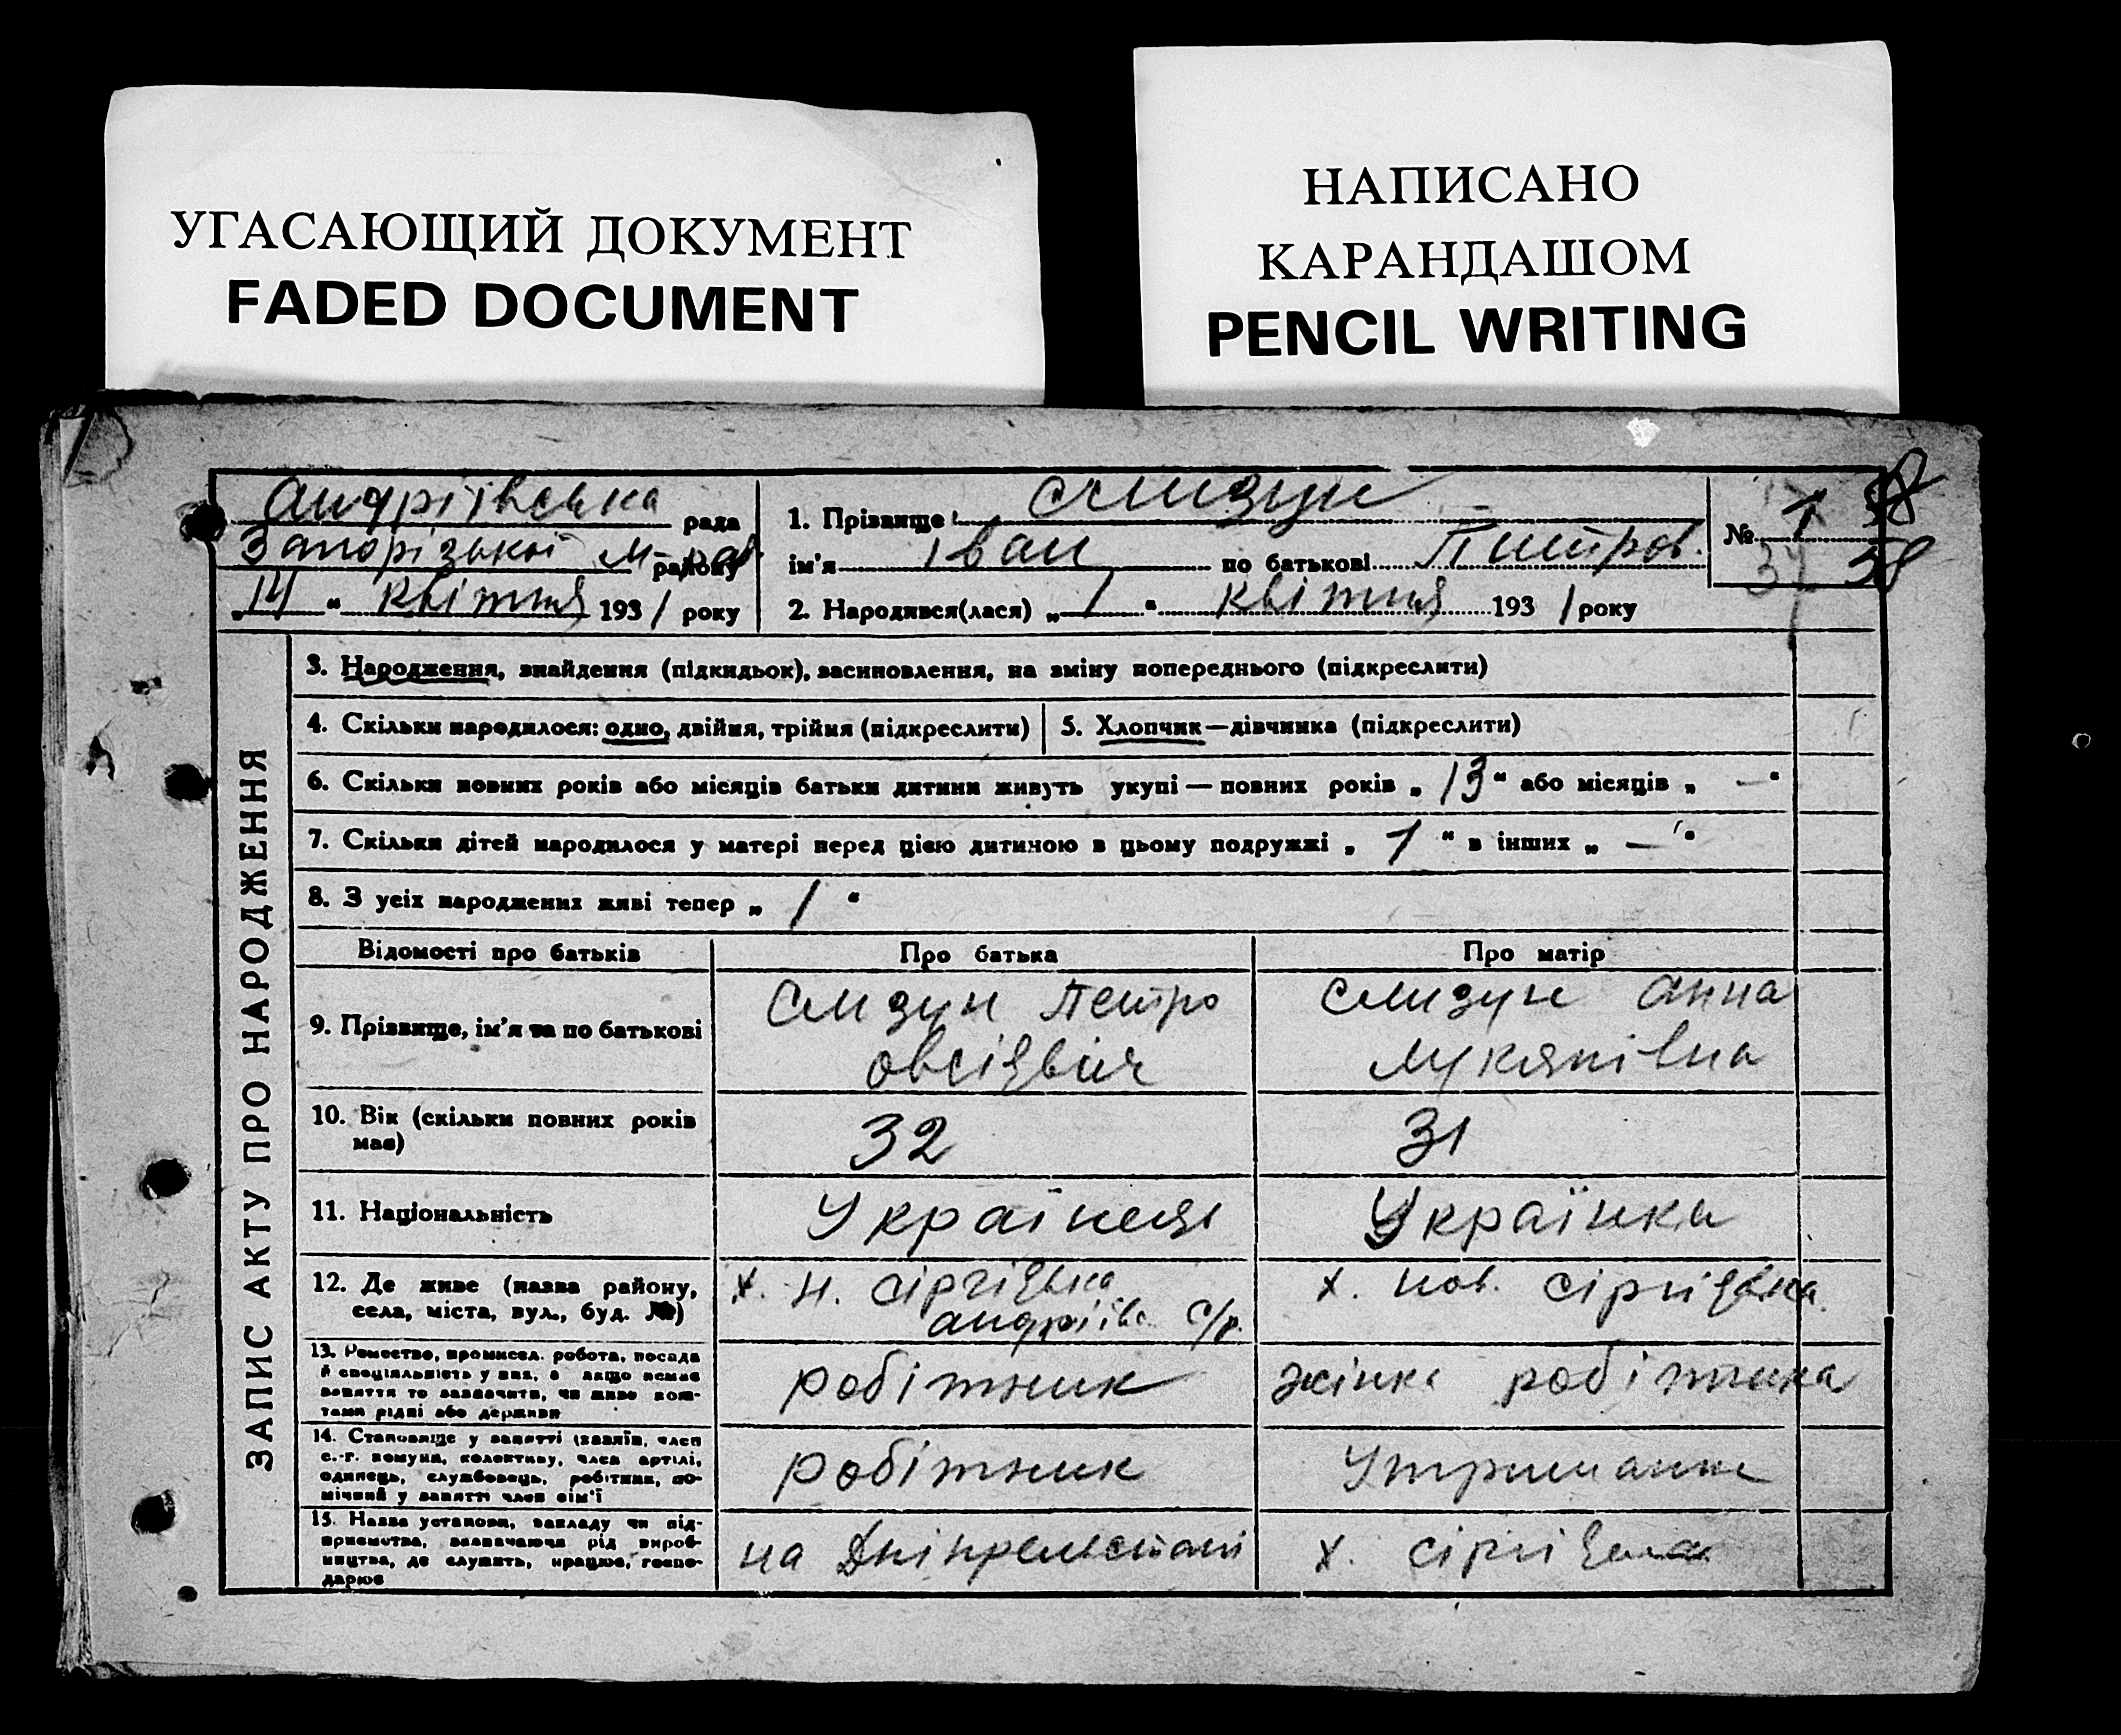 УГАСАЮЩИЙ ДОКУМЕНТ
FADED DOCUMENT
НАПИСАНО
КАРАНДАШОМ
PENCIL WRITING
Андріівська рада
Запорізької м-рай району
„14“ квітня 1931 року
1. Прізвище Слизун
ім'я Іван по батькові Питров.
2. Народився(лася) „1“ квітня 1931 року
№ 1
58
37 58
ЗАПИС АКТУ ПРО НАРОДЖЕННЯ
3. Народження, знайдення (підкидьок), засиновлення, на зміну попереднього (підкреслити)
4. Скільки народилося: одно, двійня, трійня (підкреслити)
5. Хлопчик—дівчинка (підкреслити)
6. Скільки повних років або місяців батьки дитини живуть укупі — повних років „13“ або місяців „—“
7. Скільки дітей народилося у матері перед цією дитиною в цьому подружжі „1“ в інших „—“
8. З усіх народжених живі тепер „1“
Відомості про батьків Про батька Про матір
9. Прізвище, ім'я та по батькові
Слизун Петро
Овсіявич
Слизун Анна
Лукянівна
10. Вік (скільки повних років
має)
32
31
11. Національність
Українець
Українка
12. Де живе (назва району,
села, міста, вул., буд. №)
х. Н. Сіргіївка
Андріів. с/р.
х. Нов. Сіргіївка
13. Ремество, промисел. робота, посада
й спеціяльність у них, а якщо немає
заняття то зазначити, чи живе кош-
тами рідні або держави
робітник
жінка робітника
14. Становище у занятті (хазяїн, член
с.-г. комуни, колективу, член артілі,
одинець, службовець, робітник, по-
мічний у занятті член сім'ї
робітник
Утриманка
15. Назва установи, закладу чи під-
приємства, зазначаючи рід вироб-
ництва, де служить, працює, госпо-
дарює
на Дніпрельстані
х. Сіргіївка